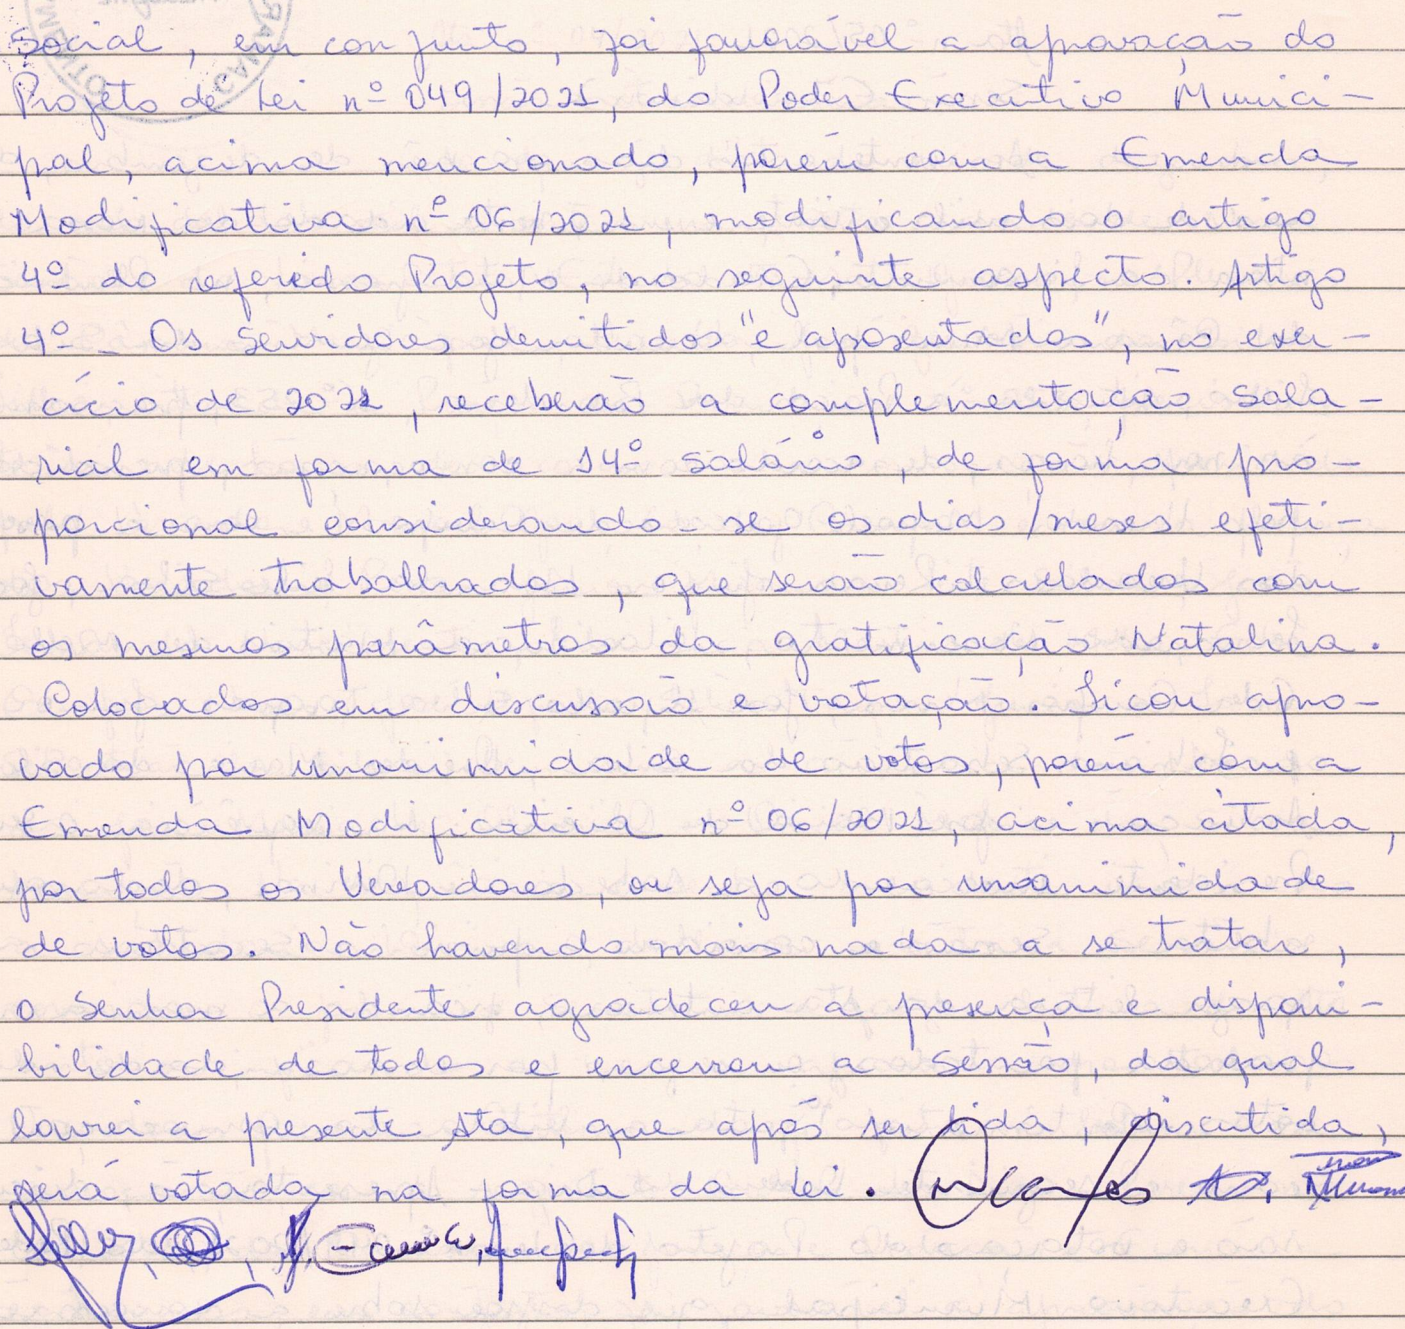 Social, em conjunto, foi favorável a aprovação do
Projeto de Lei nº 049/2021, do Poder Executivo Munici-
pal, acima mencionado, porém com a Emenda
Modificativa nº 06/2021, modificando o artigo
4º do referido Projeto, no seguinte aspecto. Artigo
4º - Os Servidores demitidos "e aposentados", no exer-
cício de 2021, receberão a complementação sala-
rial em forma de 14º salário, de forma pro-
porcional considerando-se os dias/meses efeti-
vamente trabalhados, que serão calculados com
os mesmos parâmetros da gratificação Natalina.
Colocados em discussão e votação. Ficou apro-
vado por unanimidade de votos, porém com a
Emenda Modificativa nº 06/2021, acima citada,
por todos os Vereadores, ou seja por unanimidade
de votos. Não havendo mais nada a se tratar,
o Senhor Presidente agradeceu a presença e disponi-
bilidade de todos e encerrou a Sessão, da qual
lavrei a presente Ata, que após ser lida, discutida,
será votada na forma da Lei.